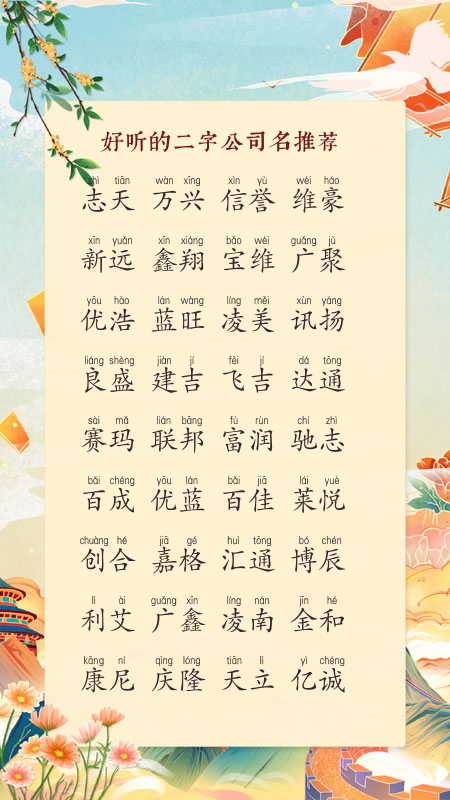 好听的二字公司名推荐
zhì tiān wàn xīng xìn yù wéi háo
志天 万兴 信誉 维豪
xīn yuǎn xīn xiáng bǎo wéi guǎng jù
新远 鑫翔 宝维 广聚
yōu hào lán wàng líng měi xùn yáng
优浩 蓝旺 凌美 讯扬
liáng shèng jiàn jí fēi jí dá tōng
良盛 建吉 飞吉 达通
sài mǎ lián bāng fù rùn chí zhì
赛玛 联邦 富润 驰志
bǎi chéng yōu lán bǎi jiā lái yuè
百成 优蓝 百佳 莱悦
chuàng hé jiā gé huì tōng bó chén
创合 嘉格 汇通 博辰
lì ài guǎng xīn líng nán jīn hé
利艾 广鑫 凌南 金和
kāng ní qìng lóng tiān lì yì chéng
康尼 庆隆 天立 亿诚